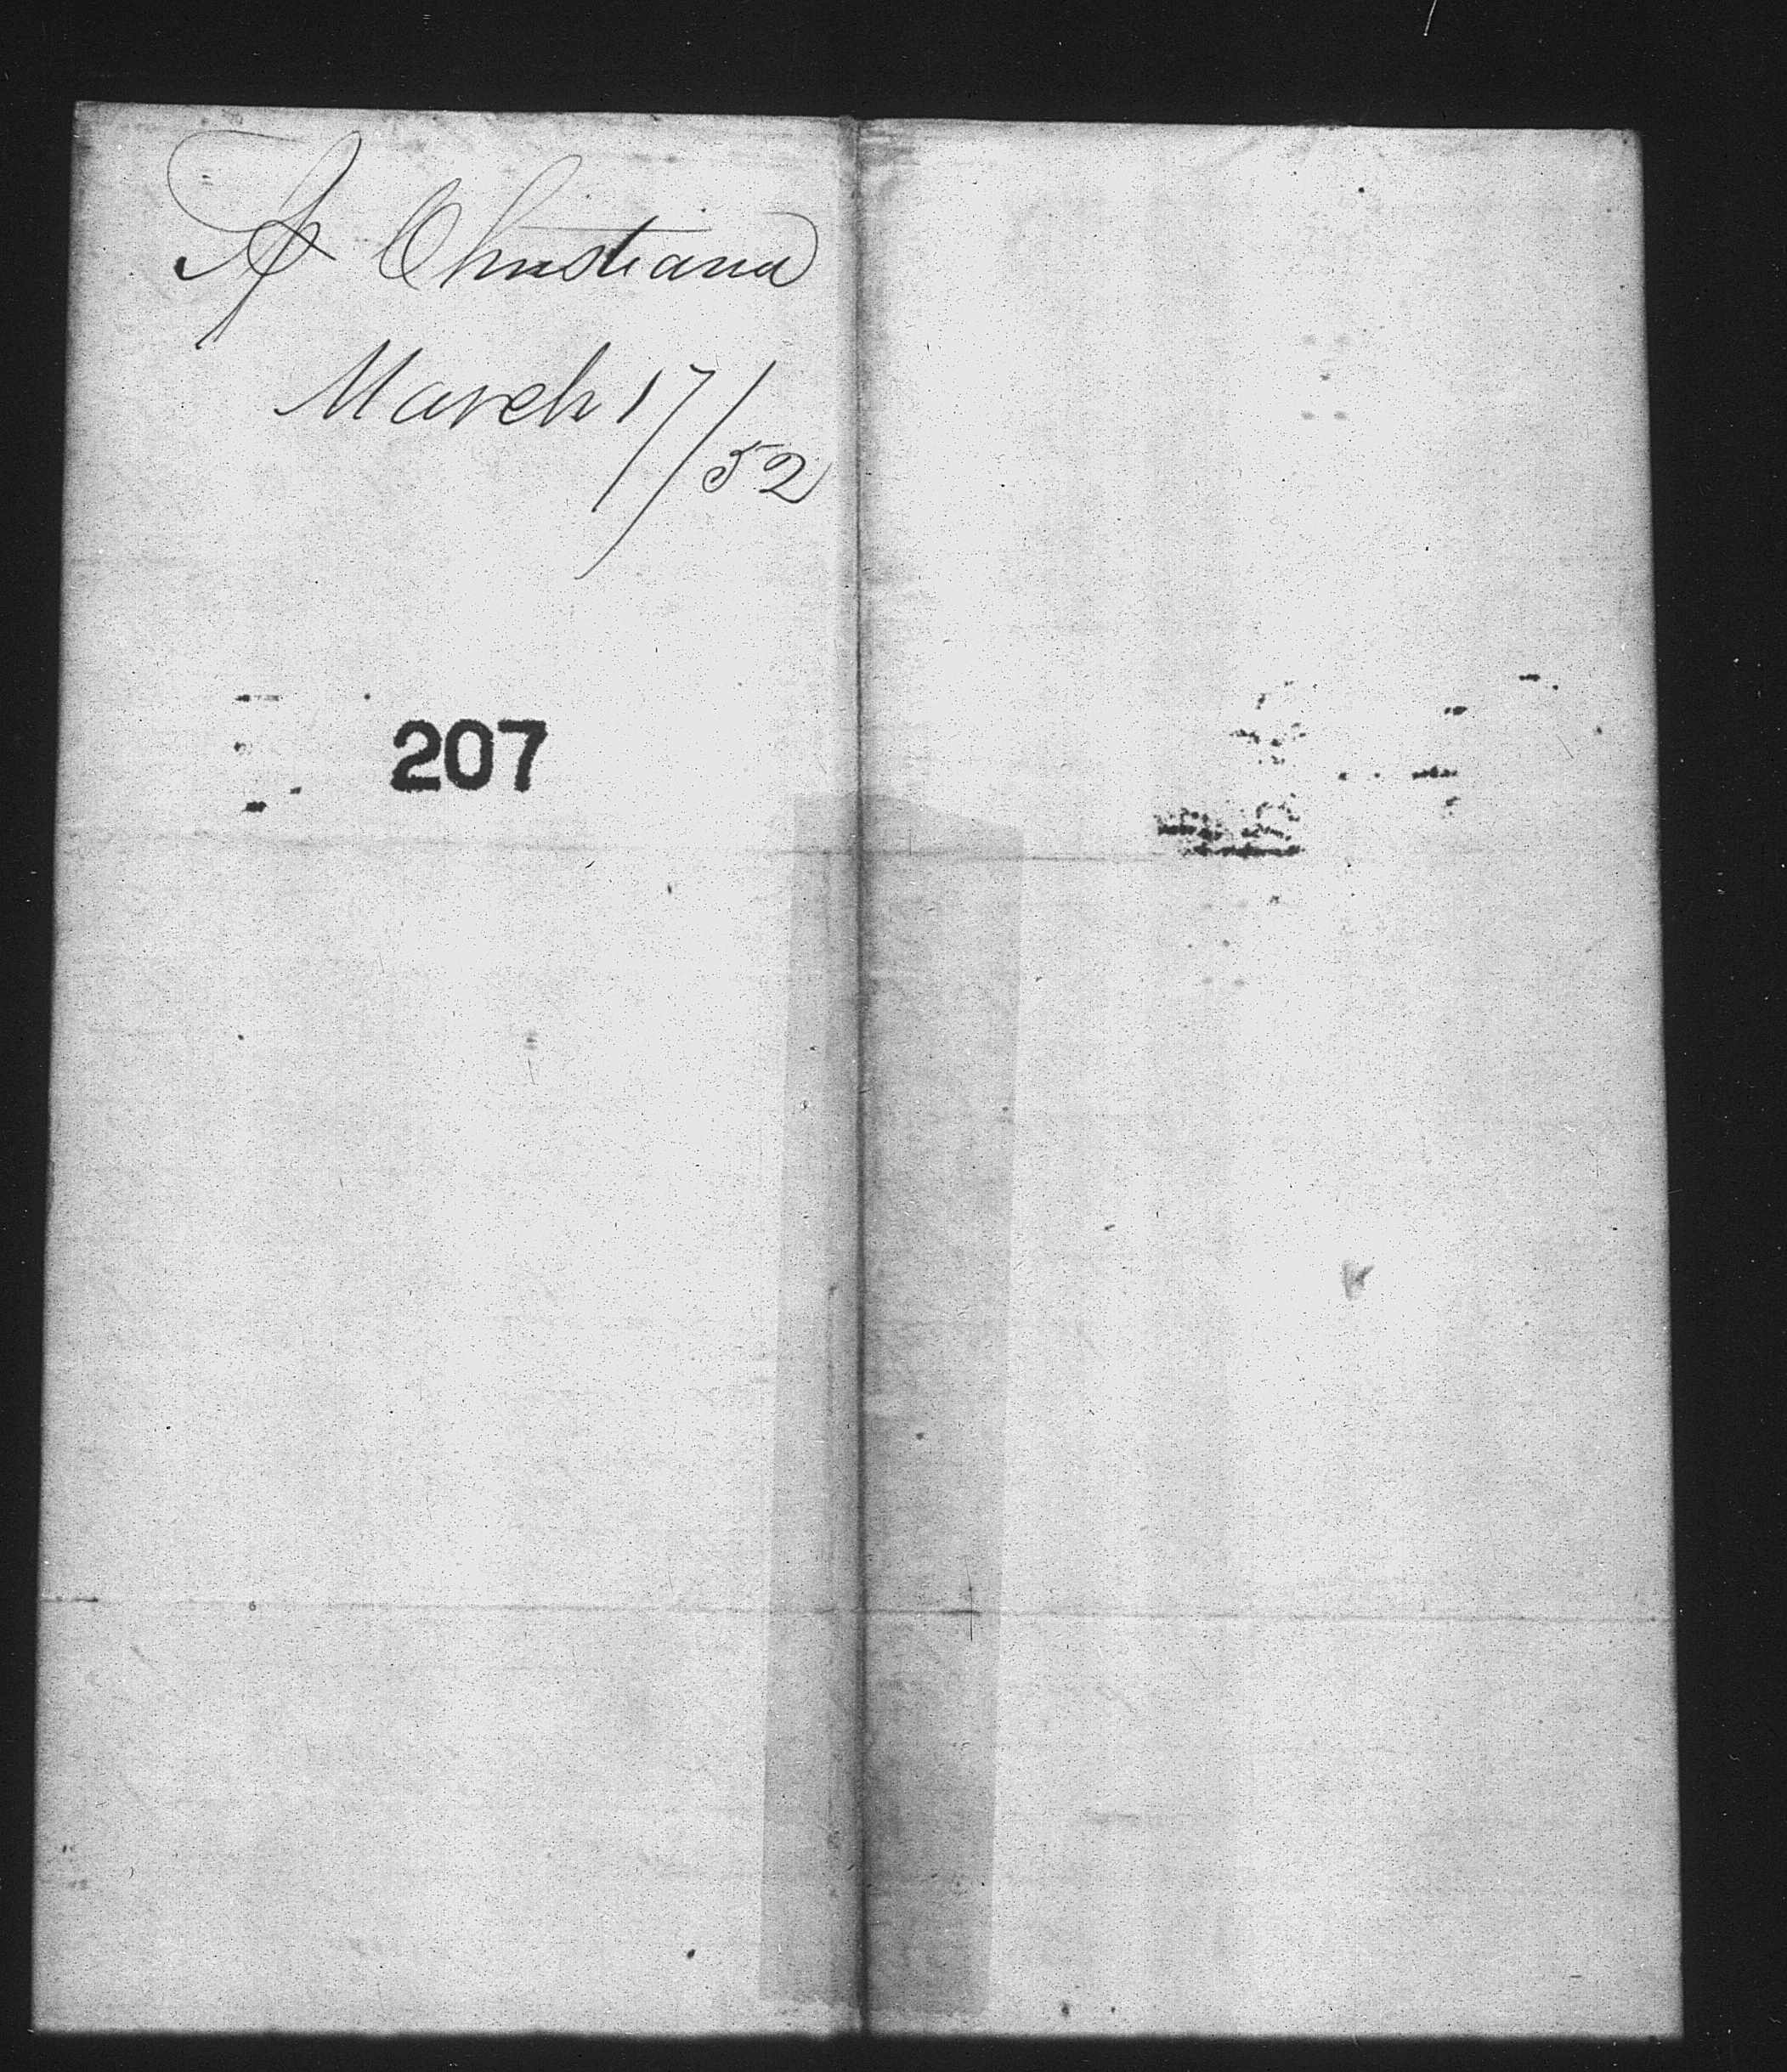 A Christiana
March 17/52
207